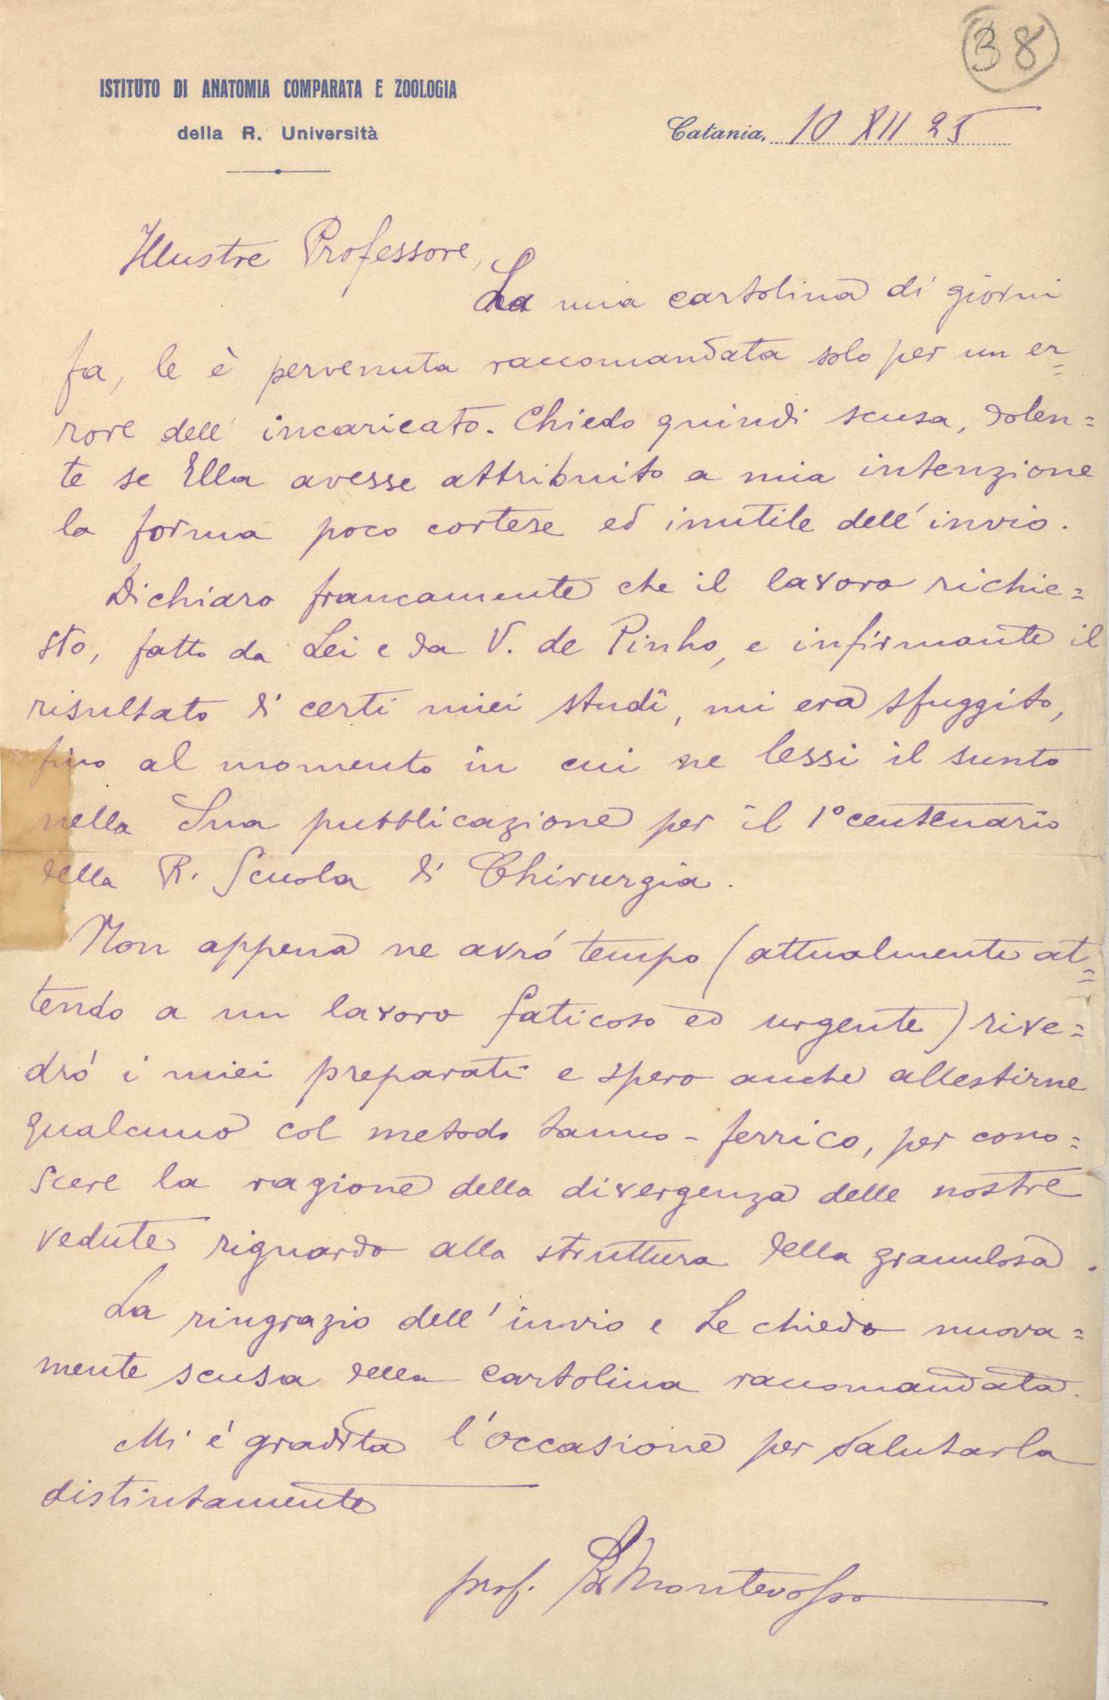 38
ISTITUTO DI ANATOMIA COMPARATA E ZOOLOGIA
della R. Università
Catania, 10 XII 25
Illustre Professore,
La mia cartolina di giorni
fa, le è pervenuta raccomandata solo per un er=
rore dell' incaricato. Chiedo quindi scusa, dolen=
te se Ella avesse attribuito a mia intenzione
la forma poco cortese ed inutile dell'invio.
Dichiaro francamente che il lavoro richie=
sto, fatto da Lei e da V. de Pinho, e infirmante il
risultato di certi miei studî, mi era sfuggito,
fino al momento in cui ne lessi il sunto
nella Sua pubblicazione per il 1° centenario
della R. Scuola di Chirurgia.
Non appena ne avrò tempo (attualmente at=
tendo a un lavoro faticoso ed urgente) rive=
drò i miei preparati e spero anche allestirne
qualcuno col metodo tanno-ferrico, per cono=
scere la ragione della divergenza delle nostre
vedute riguardo alla struttura della granulosa.
La ringrazio dell'invio e Le chiedo nuova=
mente scusa della cartolina raccomandata.
Mi è gradita l'occasione per salutarla
distintamente
prof. B. Monterosso